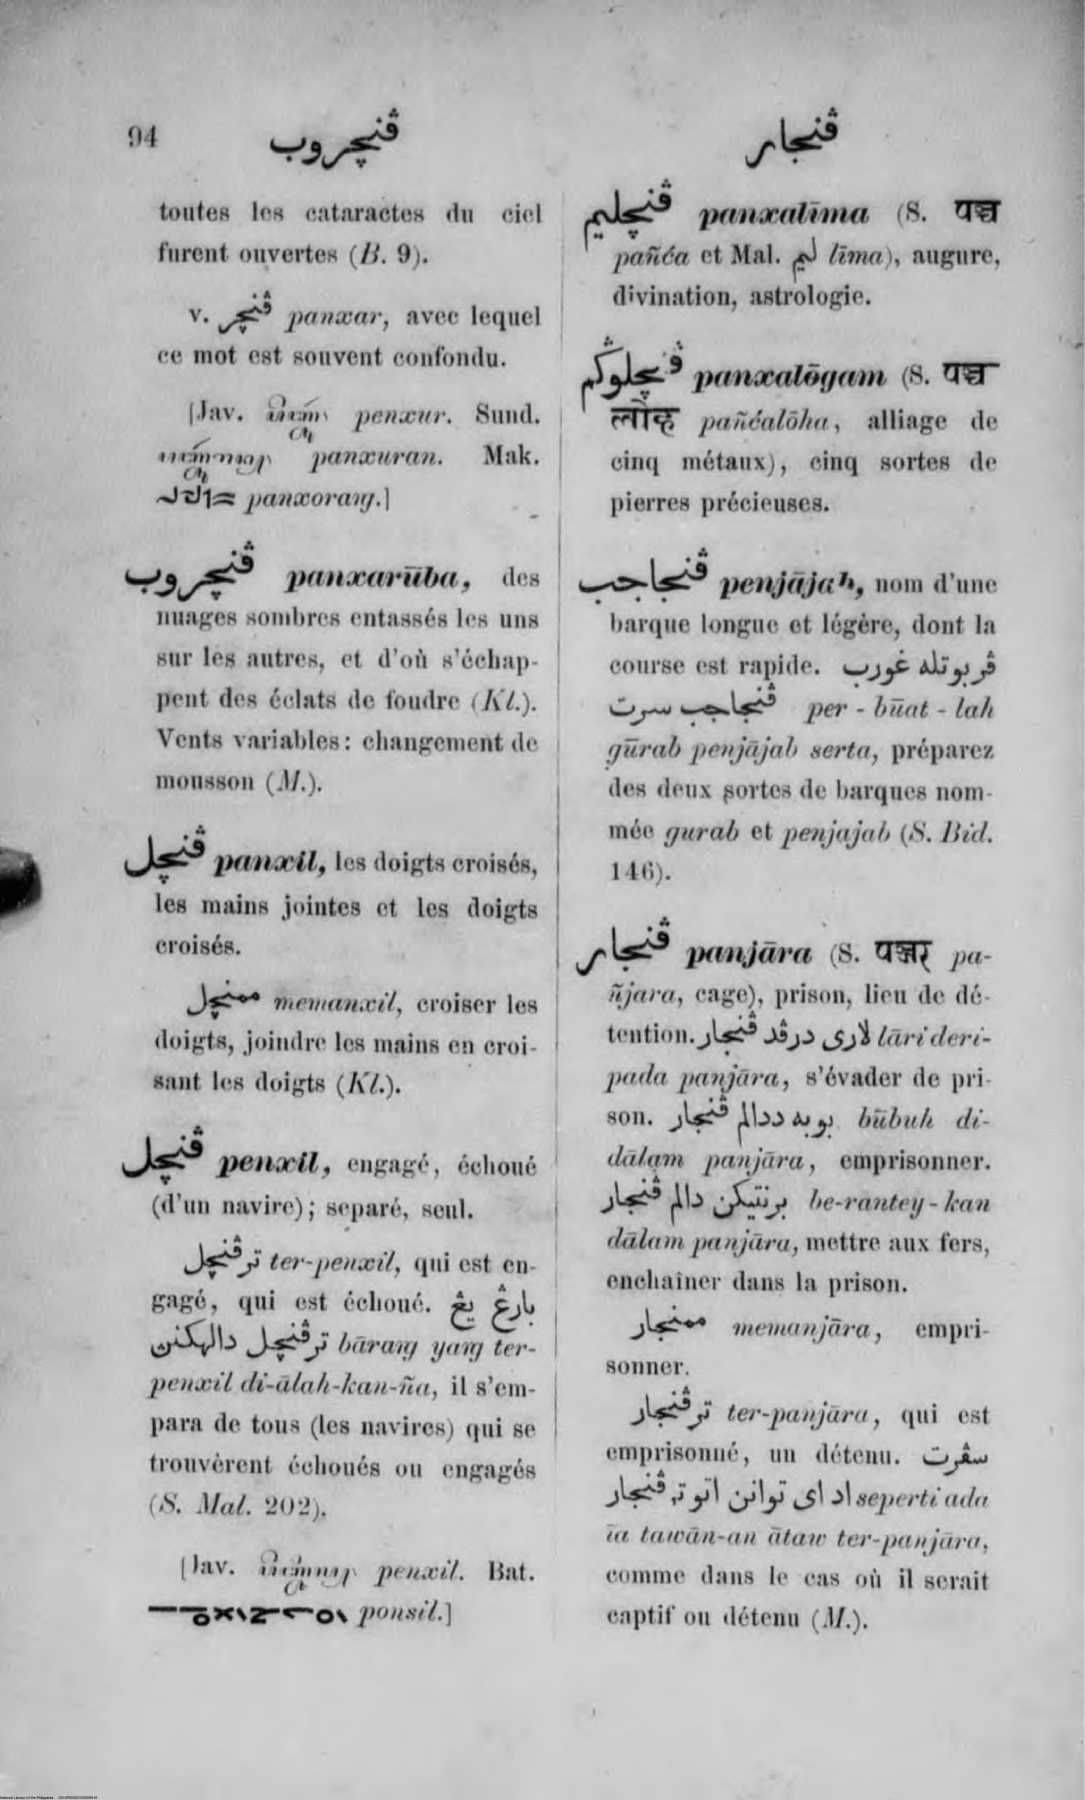 94
ڤنچروب
ڤنجار
toutes les cataractes du ciel
furent ouvertes (B. 9).
v. ڤنچر panxar, avec lequel
ce mot est souvent confondu.
[Jav. penxur. Sund.
panxuran. Mak.
panxoraŋ.]
ڤنچروب panxarūba, des
nuages sombres entassés les uns
sur les autres, et d'où s'échap-
pent des éclats de foudre (Kl.).
Vents variables: changement de
mousson (M.).
ڤنچل panxil, les doigts croisés,
les mains jointes et les doigts
croisés.
ممنچل memanxil, croiser les
doigts, joindre les mains en croi-
sant les doigts (Kl.).
ڤنچل penxil, engagé, échoué
(d'un navire); separé, seul.
ترڤنچل ter-penxil, qui est en-
gagé, qui est échoué. بارڠ يڠ
ترڤنچل دالهكنن bāraŋ yaŋ ter-
penxil di-ālah-kan-ña, il s'em-
para de tous (les navires) qui se
trouvèrent échoués ou engagés
(S. Mal. 202).
[Jav. penxil. Bat.
ponsil.]
ڤنچليم panxalīma (S. पञ्च
pañća et Mal. ليم līma), augure,
divination, astrologie.
ڤنچلوڬم panxalōgam (S. पञ्च
लौह pañćalōha, alliage de
cinq métaux), cinq sortes de
pierres précieuses.
ڤنجاجب penjājah, nom d'une
barque longue et légère, dont la
course est rapide. ڤربوتله غورب
ڤنجاجب سرت per-būat-lah
gūrab penjājab serta, préparez
des deux sortes de barques nom-
mée gurab et penjajab (S. Bid.
146).
ڤنجار panjāra (S. पञ्जर pa-
ñjara, cage), prison, lieu de dé-
tention. لاري درڤد ڤنجار lāri deri-
pada panjāra, s'évader de pri-
son. بوبه ددالم ڤنجار būbuh di-
dālam panjāra, emprisonner.
برنتيكن دالم ڤنجار be-rantey-kan
dālam panjāra, mettre aux fers,
enchaîner dans la prison.
ممنجار memanjāra, empri-
sonner.
ترڤنجار ter-panjāra, qui est
emprisonné, un détenu. سڤرت
اد اي توانن اتو ترڤنجار seperti ada
īa tawān-an ātaw ter-panjāra,
comme dans le cas où il serait
captif ou détenu (M.).